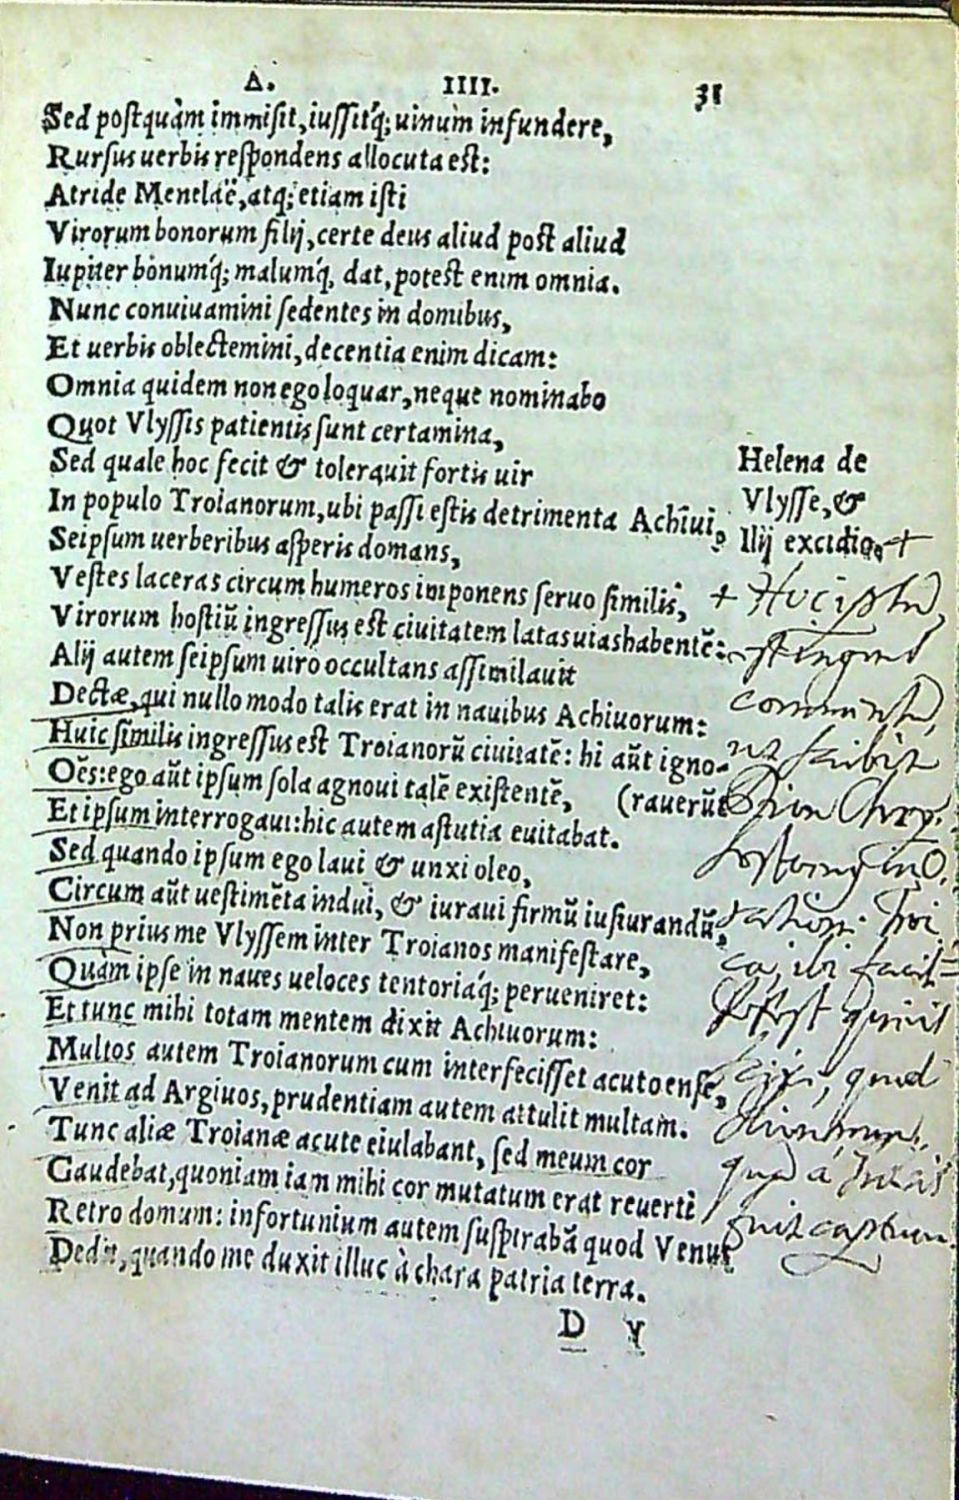 Δ. IIII. 31
Sed postquàm immisit, iussitq́; uinum infundere,
Rursus uerbis respondens allocuta est:
Atride Menelaë, atq; etiam isti
Virorum bonorum filij, certe deus aliud post aliud
Iupiter bonumq́; malumq́, dat, potest enim omnia.
Nunc conuiuamini sedentes in domibus,
Et uerbis oblectemini, decentia enim dicam:
Omnia quidem non ego loquar, neque nominabo
Quot Vlyssis patientis sunt certamina,
Sed quale hoc fecit & tolerauit fortis uir
In populo Troianorum, ubi passi estis detrimenta Achiui,
Seipsum uerberibus asperis domans,
Vestes laceras circum humeros imponens seruo similis,
Virorum hostiũ ingressus est ciuitatem latas uias habentẽ:
Alij autem seipsum uiro occultans assimilauit
Dectæ, qui nullo modo talis erat in nauibus Achiuorum:
Huic similis ingressus est Troianorũ ciuitatẽ: hi aũt igno-
Oẽs: ego aũt ipsum sola agnoui talẽ existentẽ, (rauerũt
Et ipsum interrogaui: hic autem astutia euitabat.
Sed quando ipsum ego laui & unxi oleo,
Circum aũt uestimẽta indui, & iuraui firmũ iusiurandũ,
Non prius me Vlyssem inter Troianos manifestare,
Quàm ipse in naues ueloces tentoriaq́; perueniret:
Et tunc mihi totam mentem dixit Achiuorum:
Multos autem Troianorum cum interfecisset acuto ense,
Venit ad Argiuos, prudentiam autem attulit multam.
Tunc aliæ Troianæ acute eiulabant, sed meum cor
Gaudebat, quoniam iam mihi cor mutatum erat reuerti
Retro domum: infortunium autem suspirabã quod Venus
Dedit, quando me duxit illuc à chara patria terra.
D v
Helena de
Vlysse, &
Ilij excidio. +
+
ut scribit
Dion Chry
quod
quod à
fuit captum.